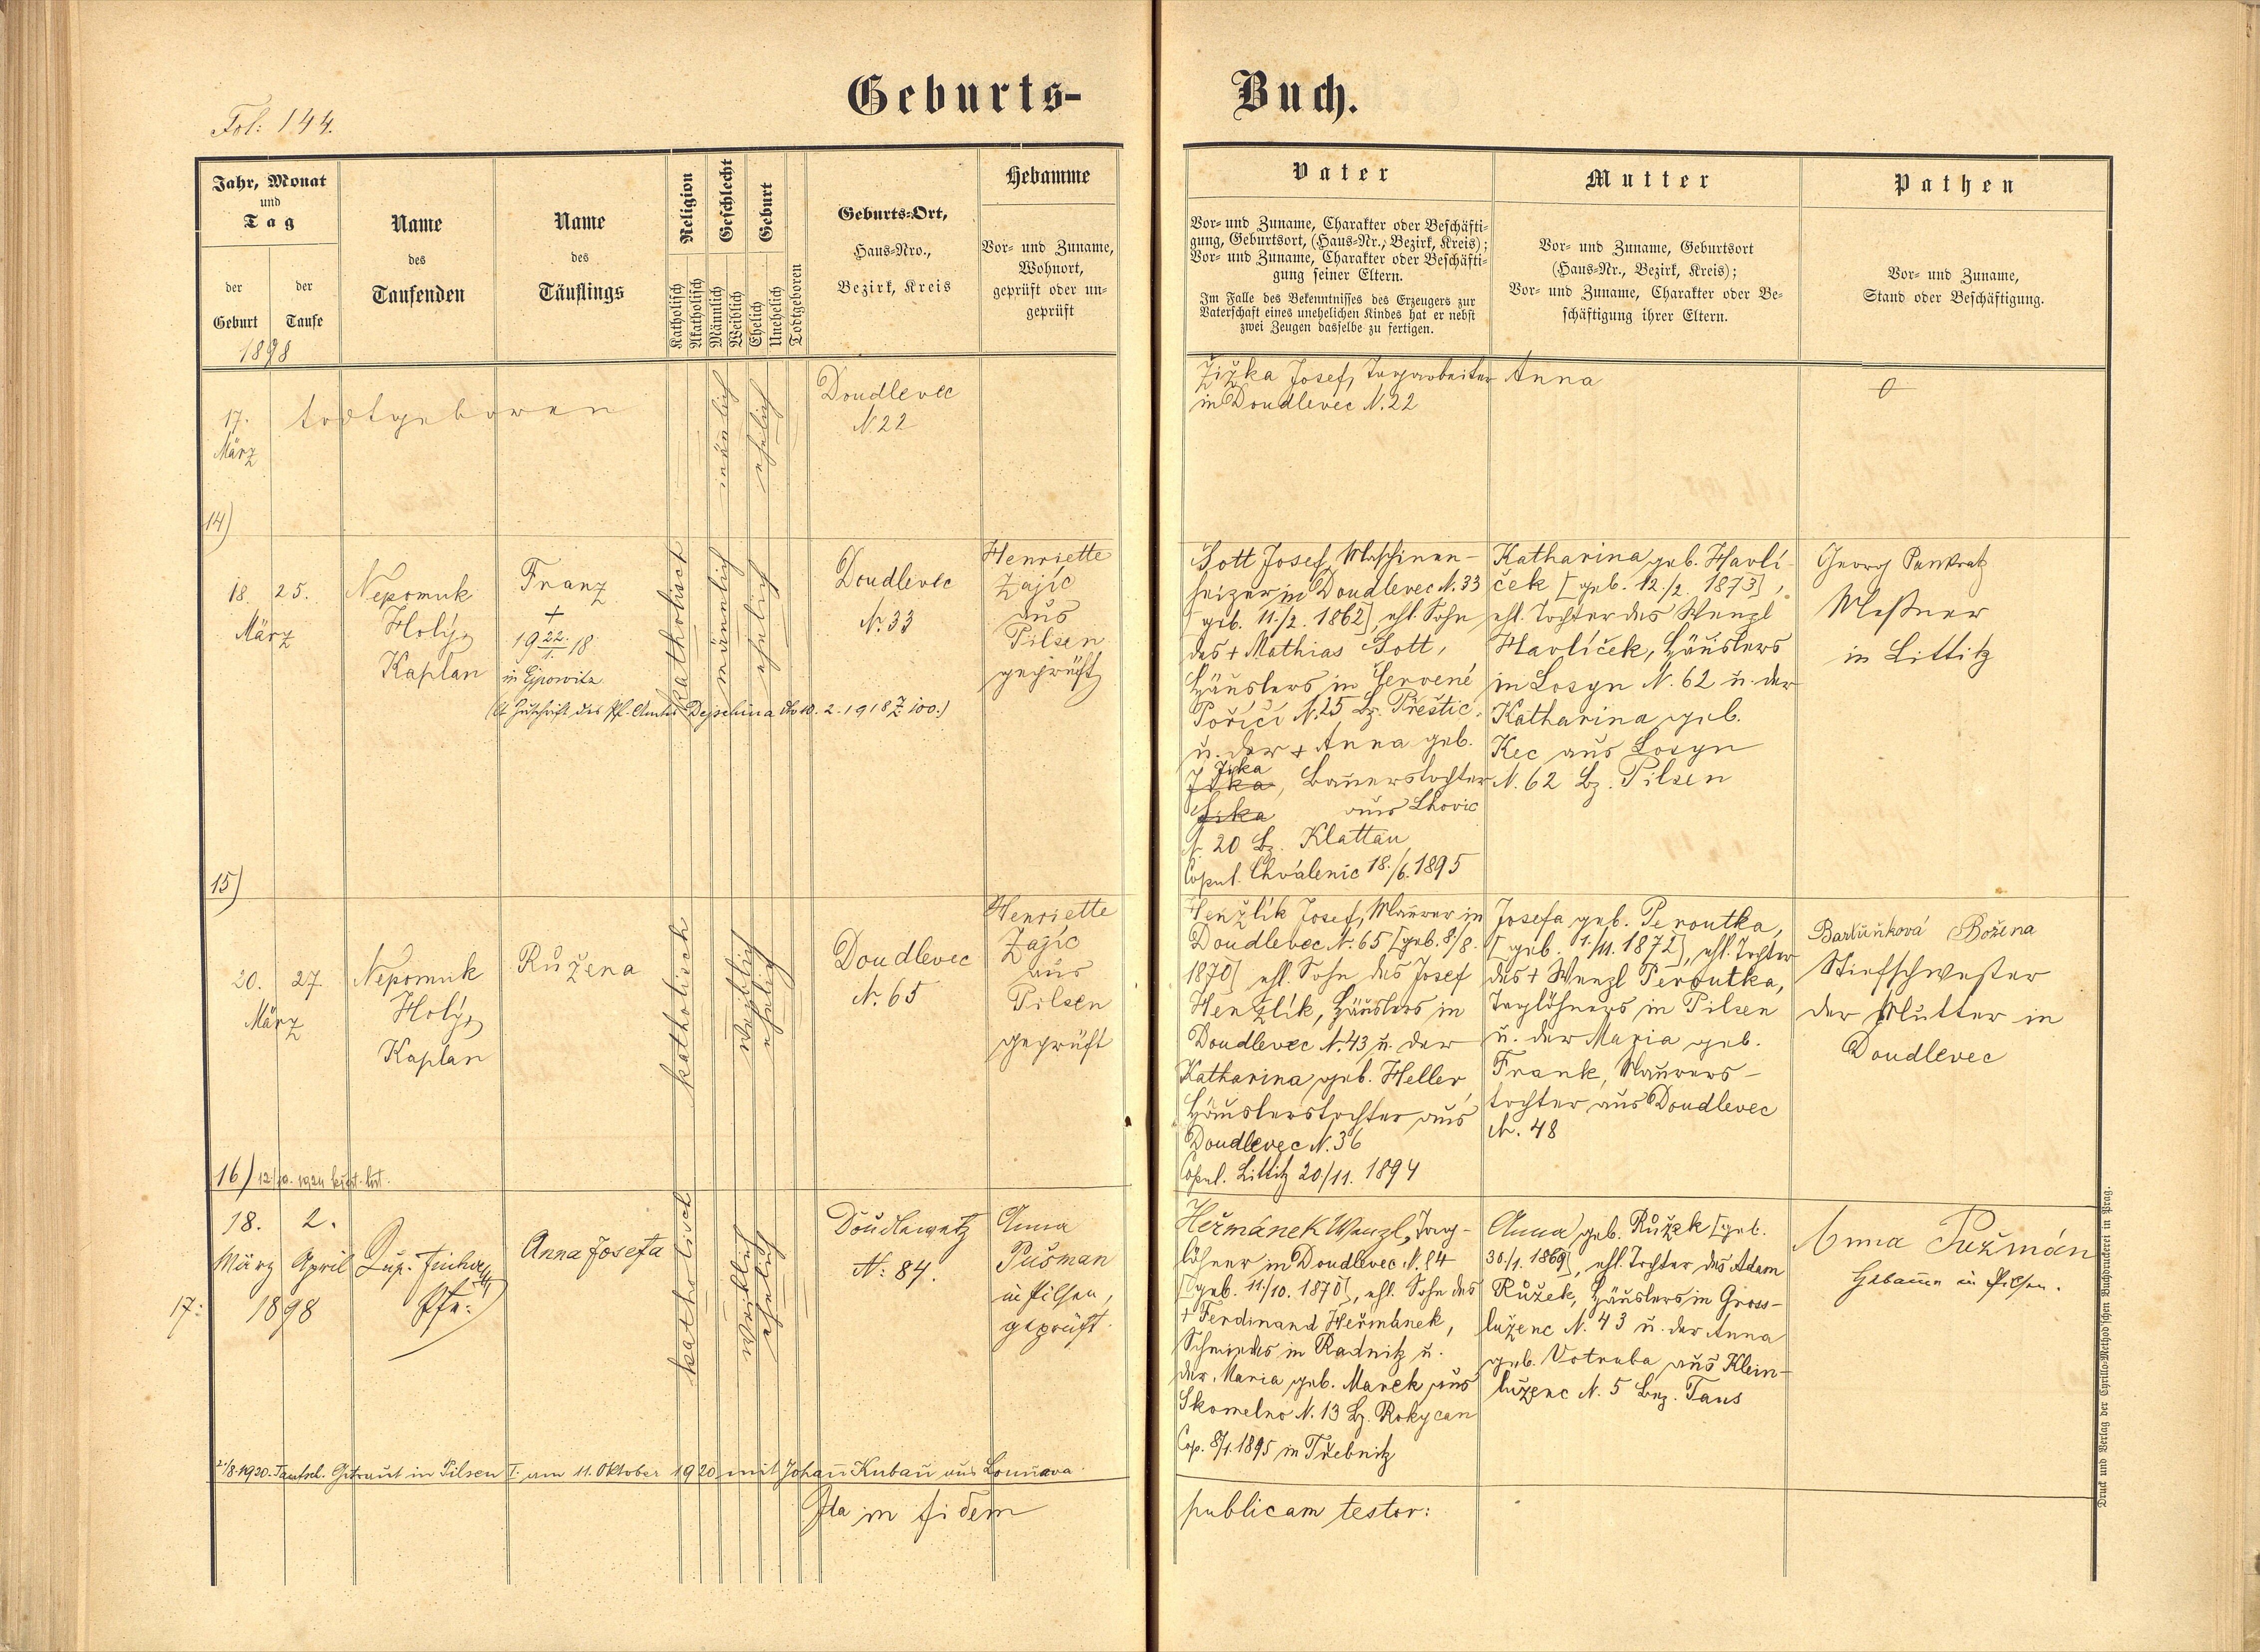 Fol: 144.
Geburts-Buch.
Jahr, Monat
und
Tag
der
Geburt
der
Taufe
1898
Name
des
Taufenden
Name
des
Täuflings
Religion
Katholisch
Akatholisch
Geschlecht
Männlich
Weiblich
Geburt
Ehelich
Unehelich
Todtgeboren
Geburts-Ort,
Haus-Nro.,
Bezirk, Kreis
Hebamme
Vor- und Zuname,
Wohnort,
geprüft oder un-
geprüft
Vater
Vor- und Zuname, Charakter oder Beschäfti-
gung, Geburtsort, (Haus-Nr., Bezirk, Kreis);
Vor- und Zuname, Charakter oder Beschäfti-
gung seiner Eltern.
Im Falle des Bekenntnisses des Erzeugers zur
Vaterschaft eines unehelichen Kindes hat er nebst
zwei Zeugen dasselbe zu fertigen.
Mutter
Vor- und Zuname, Geburtsort
(Haus-Nr., Bezirk, Kreis);
Vor- und Zuname, Charakter oder Be-
schäftigung ihrer Eltern.
Pathen
Vor- und Zuname,
Stand oder Beschäftigung.
17.
März
todtgeboren
männlich
ehelich
Doudlevec
N. 22
Žižka Josef, Tagarbeiter
in Doudlevec N. 22
Anna
0
14)
18. 25.
März
Nepomuk
Holý,
Kaplan
Franz
+
19 22./1. 18
in Ejpowitz
(lt Zuschrift des Pf. Amtes Dejschina dto 10. 2. 1918 Z 100.)
katholisch
männlich
ehelich
Doudlevec
N. 33
Henriette
Zajíc
aus
Pilsen
geprüft
Sott Josef, Maschinen-
heizer in Doudlevec N. 33
[geb. 11./2. 1862], ehl. Sohn
des + Mathias Sott,
Häuslers in Červené
Poříčí N. 25 Bz. Přeštic
u. der + Anna geb.
Jska, Bauerstochter
aus Lhovic
N. 20 Bz. Klattau
Copul. Chválenic 18./6. 1895
Katharina geb. Havlí-
ček [geb. 12./2. 1873],
ehl. Tochter des Wenzl
Havlíček, Häuslers
in Losyn N. 62 u. der
Katharina geb.
Kec aus Losyn
N. 62 Bz. Pilsen
Georg Pankratz
Meßner
in Littitz
15)
20. 27.
März
Nepomuk
Holý,
Kaplan
Růžena
katholisch
weiblich
ehelich
Doudlevec
N. 65
Henriette
Zajíc
aus
Pilsen
geprüft
Henžlík Josef, Maurer in
Doudlevec N. 65 [geb. 8/8.
1870] ehl. Sohn des Josef
Henžlík, Häuslers in
Doudlevec N. 43 u. der
Katharina geb. Heller,
Häuslerstochter aus
Doudlevec N. 36
Copul. Littitz 20/11. 1894
Josefa geb. Peroutka,
[geb. 1./11. 1872], ehl. Tochter
des + Wenzl Peroutka,
Taglöhners in Pilsen
u. der Maria geb.
Frank, Maurers-
tochter aus Doudlevec
N. 48
Bartůňková Božena
Stiefschwester
der Mutter in
Doudlevec
16)
18. 2.
März April
17: 1898
Anna Josefa
katholisch
weiblich
ehelich
Doudlewetz
N: 84.
Anna
Pušman
in Pilsen,
geprüft.
Heřmánek Wenzl, Tag-
löhner in Doudlevec N. 84
[geb. 11/10. 1870], ehl. Sohn des
+ Ferdinand Heřmánek,
Schmiedes in Radnitz u.
der Maria geb. Marek aus
Skomelno N. 13 Bz. Rokycan
Cop. 8/1. 1895 in Třebnitz
Anna geb. Růžek [geb.
30./1. 1869], ehl. Tochter des Adam
Růžek, Häuslers in Gross-
luženc N. 43 u. der Anna
geb. Votruba aus Klein-
luženc N. 5 Bez. Taus
Anna Pužmán
Hebamme in Pilsen.
Taufsch. Getraut in Pilsen I. am 11. Oktober 1920 mit Johann Kuban aus
Ita in fidem publicam testor:
Druck und Verlag der Cyrillo-Method'schen Buchdruckerei in Prag.